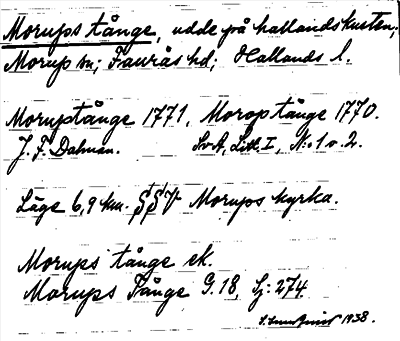 Morups tånge, udde på hallandskusten;
Morup sn; Faurås hd; Hallands l.
Moruptånge 1771, Moroptånge 1770.
J. F. Dalman. SvA, Litt. I, N:o 1 o. 2.
Läge 6,9 km. SSV Morups kyrka.
Morups tånge ek.
Morups Tånge G. 18, Sj: 274
1938.